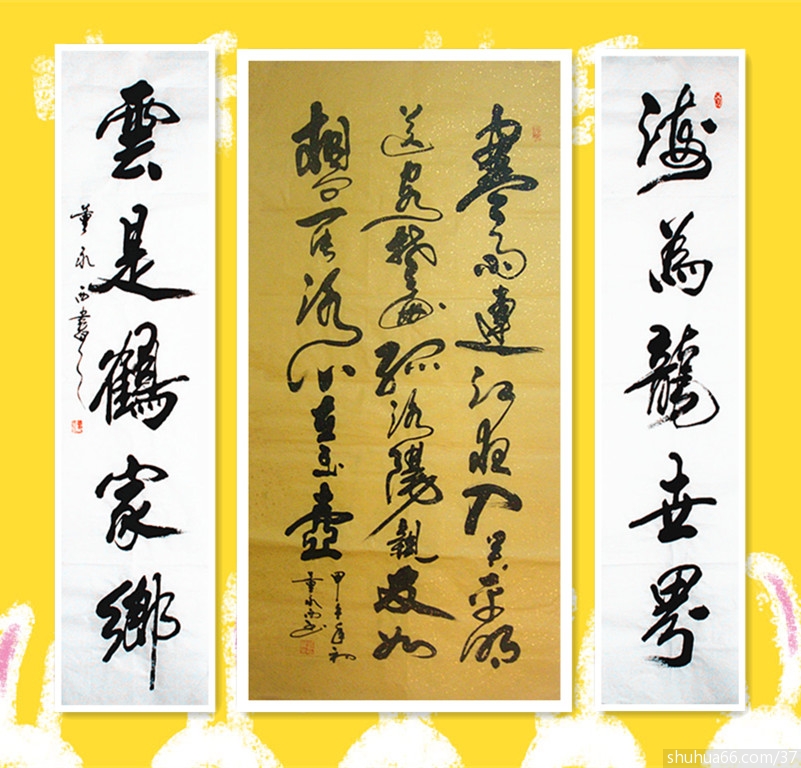 海為龍世界
寒雨連江夜入吳平明
送客楚山孤洛陽親友如
相問一片冰心在玉壺
甲午年初
董永西书
雲是鶴家鄉
董永西書
shuhua66.com/37